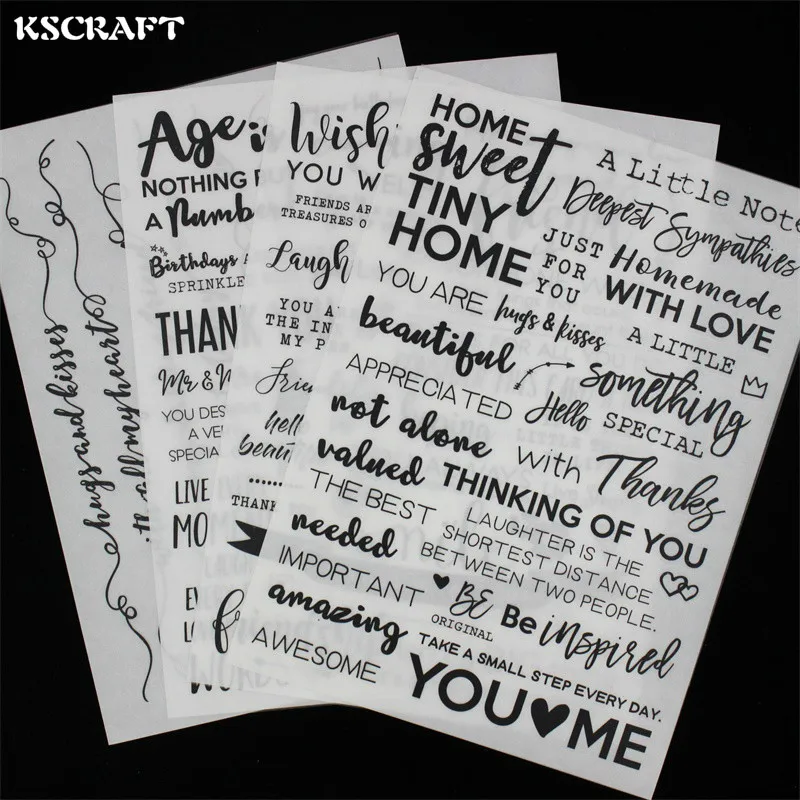 KSCRAFT
hugs and kisses
all my heart
Age
NOTHING
A Numb
Birthdays
SPRINKLE
THAN
Mr & M
YOU DES
A VE
SPECIAL
LIVE
MO
Wish
YOU W
FRIENDS AR
TREASURES O
Laugh
YOU A
THE IN
MY P
Frie
hell
beau
THANK
HOME
sweet
TINY
HOME
A Little Note
Deepest Sympathies
JUST
FOR
YOU
Homemade
WITH LOVE
YOU ARE
hugs & kisses
A LITTLE
beautiful
something
APPRECIATED
Hello
SPECIAL
not alone
with
Thanks
valued
THINKING OF YOU
THE BEST
LAUGHTER IS THE
SHORTEST DISTANCE
BETWEEN TWO PEOPLE.
needed
IMPORTANT
BE
ORIGINAL
Be inspired
amazing
TAKE A SMALL STEP EVERY DAY.
AWESOME
YOU♥ME